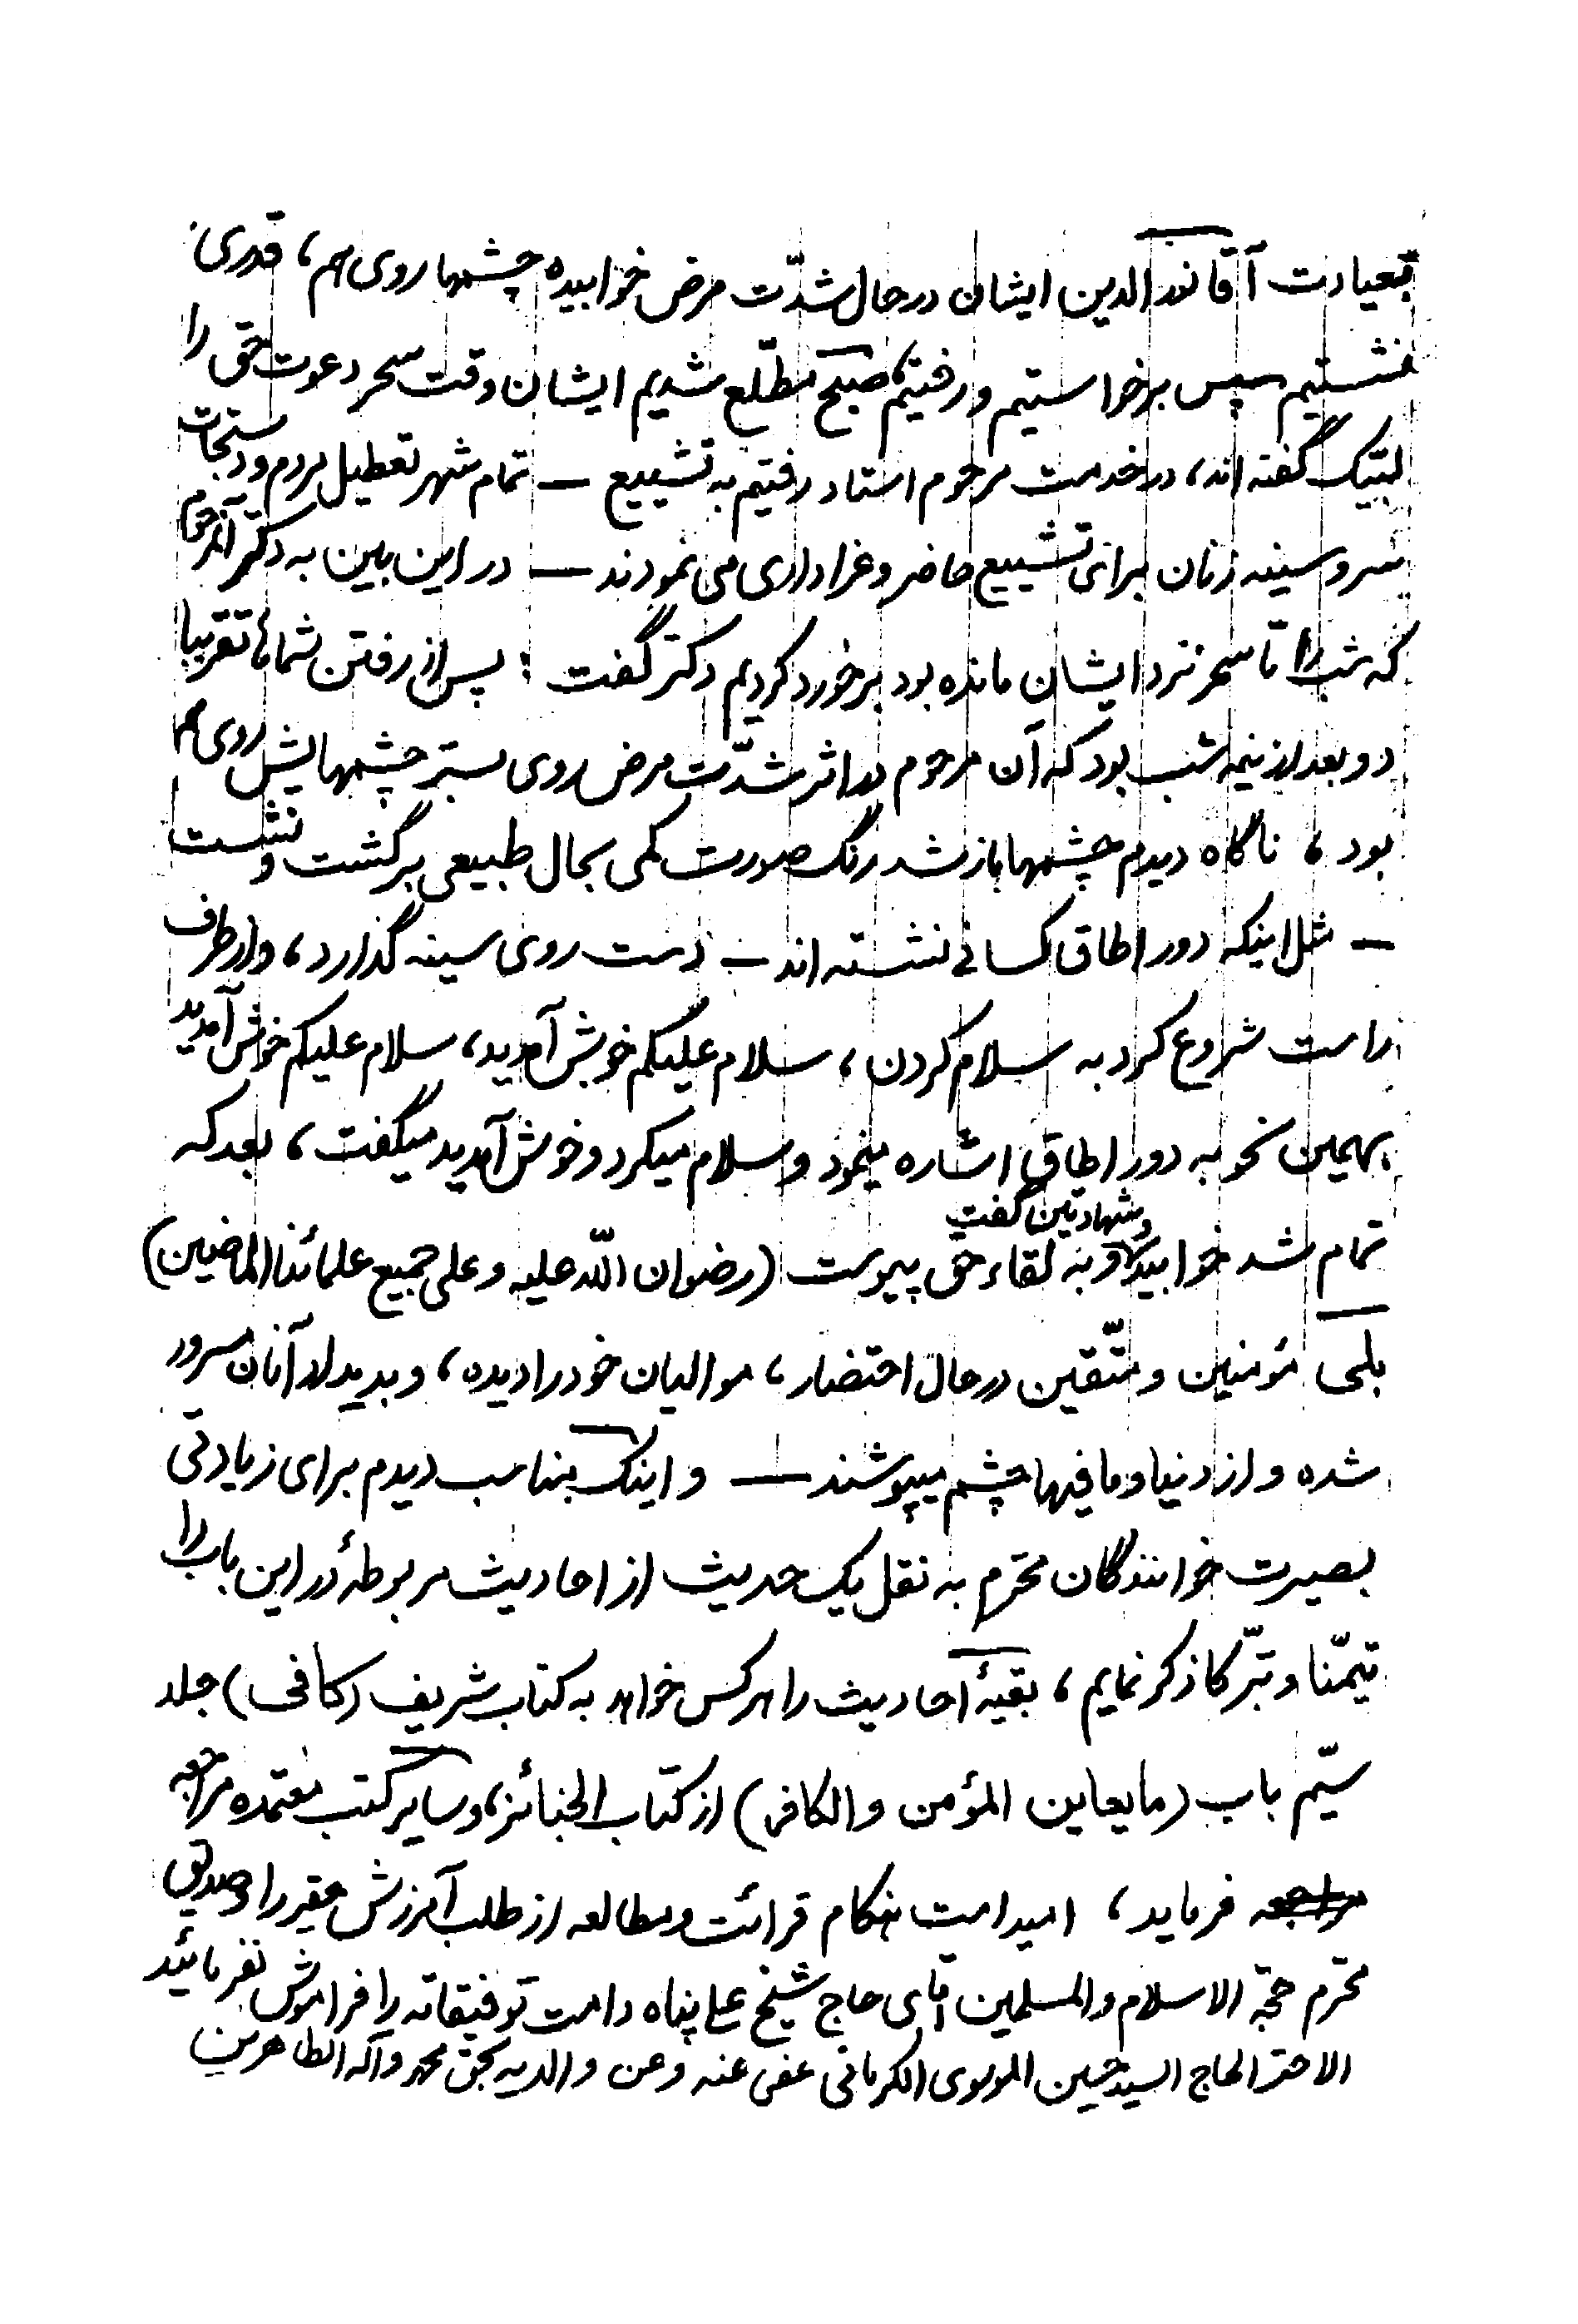 بعیادت آقا نورالدین ایشان در حال شدّت مرض خوابیده چشمها روی هم، قدری
نشستیم سپس برخواستیم و رفتیم، صبح مطّلع شدیم ایشان وقت سحر دعوت حق را
لبّیک گفته اند، در خدمت مرحوم استاد رفتیم به تشییع — تمام شهر تعطیل مردم و دستجات
سر و سینه زنان برای تشییع حاضر و عزاداری می نمودند — در این بین به دکتر آنمرحوم
که شب را تا سحر نزد ایشان مانده بود برخورد کردیم دکتر گفت : پس از رفتن شماها تقریبا
دو بعد از نیمه شب بود که آن مرحوم در اثر شدّت مرض روی بستر چشمهایش روی هم
بود، ناگاه دیدم چشمها باز شد رنگ صورت کمی بحال طبیعی برگشت و نشست
— مثل اینکه دور اطاق کسانی نشسته اند — دست روی سینه گذارد، و از طرف
راست شروع کرد به سلام کردن، سلام علیکم خوش آمدید، سلام علیکم خوش آمدید
بهمین نحو به دور اطاق اشاره مینمود و سلام میکرد و خوش آمدید میگفت، بعد که
تمام شد خوابید و شهادتین گفت و به لقاء حق پیوست (رضوان اللّه علیه و علی جمیع علمائنا الماضین)
بلی مؤمنین و متّقین در حال احتضار، موالیان خود را دیده، و بدیدار آنان مسرور
شده و از دنیا و ما فیها چشم میپوشند — و اینک مناسب دیدم برای زیادتی
بصیرت خوانندگان محترم به نقل یک حدیث از احادیث مربوطهٔ در این باب را
تیمّنا و تبّرکا ذکر نمایم، بقیهٔ احادیث را هر کس خواهد به کتاب شریف (کافی) جلد
سیّم باب (ما یعاین المؤمن و الکافر) از کتاب الجنائز، و سایر کتب معتمده مراجعه
فرماید، امید است هنگام قرائت و مطالعه از طلب آمرزش حقیر را و صدیق
محترم حجّة الاسلام و المسلمین آقای حاج شیخ علی پناه دامت توفیقاته را فراموش نفرمائید
الاحقر الحاج السید حسین الموسوی الکرمانی عفی عنه و عن والدیه بحق محمد و آله الطاهرین